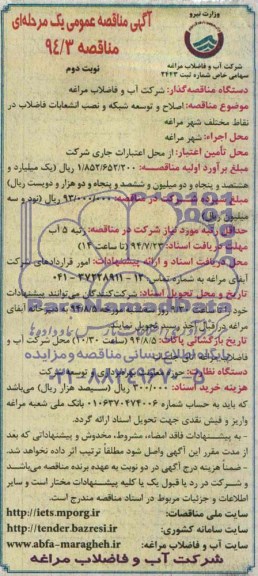 وزارت نیرو
آگهی مناقصه عمومی یک مرحله‌ای
مناقصه ۹۴/۳
نوبت دوم
شرکت آب و فاضلاب مراغه
سهامی خاص شماره ثبت ۲۴۴۳
دستگاه مناقصه‌گذار: شرکت آب و فاضلاب مراغه
موضوع مناقصه: اصلاح و توسعه شبکه و نصب انشعابات فاضلاب در
نقاط مختلف شهر مراغه
محل اجراء: شهر مراغه
محل تأمین اعتبار: از محل اعتبارات جاری شرکت
مبلغ برآورد اولیه مناقصه: ۱/۸۵۲/۶۵۲/۲۰۰ ریال (یک میلیارد و
هشتصد و پنجاه و دو میلیون و ششصد و پنجاه و دو هزار و دویست ریال)
مبلغ سپرده شرکت در مناقصه: ۹۳/۰۰۰/۰۰۰ ریال (نود و سه
میلیون ریال)
حداقل رتبه مورد نیاز شرکت در مناقصه: رتبه ۵ آب
مهلت دریافت اسناد: ۹۴/۷/۲۳ (تا ساعت ۱۴)
محل دریافت اسناد و ارائه پیشنهادات: امور قراردادهای شرکت
آبفای مراغه به شماره تماس: ۱۳-۳۷۲۴۸۹۱۱-۰۴۱
تاریخ و محل تحویل اسناد: شرکت‌کنندگان می‌توانند پیشنهادات
خود را
۹۴/۸/۵ به دبیرخانه آبفای
مراغه در قبال اخذ رسید تحویل نمایند
تاریخ بازگشائی پاکات: ۹۴/۸/۵ (ساعت ۱۰/۳۰) محل شرکت آب و
فاضلاب مراغه
دستگاه نظارت: حوزه معاونت بهره‌برداری و توسعه شرکت
هزینه خرید اسناد: ۳۰۰/۰۰۰ ریال (سیصد هزار ریال) می‌باشد
که باید به حساب شماره ۰۱۰۶۳۷۰۴۷۴۰۰۶ بانک ملی شعبه مراغه
واریز و فیش نقدی جهت تحویل اسناد ارائه گردد.
- به پیشنهادات فاقد امضاء، مشروط، مخدوش و پیشنهاداتی که بعد
از مدت مقرر این آگهی واصل شود مطلقاً ترتیب اثر داده نخواهد شد.
- ضمناً هزینه درج آگهی در دو نوبت به عهده برنده مناقصه می‌باشد
- شرکت در رد یا قبول یک یا کلیه پیشنهادات مختار است و سایر
اطلاعات و جزئیات مربوط در اسناد مناقصه مندرج است.
سایت ملی مناقصات: http://iets.mporg.ir
سایت سامانه کشوری: http://tender.bazresi.ir
سایت آب و فاضلاب مراغه: www.abfa-maragheh.ir
شرکت آب و فاضلاب مراغه
ParsNamadData
پایگاه اطلاع‌رسانی مناقصه و مزایده